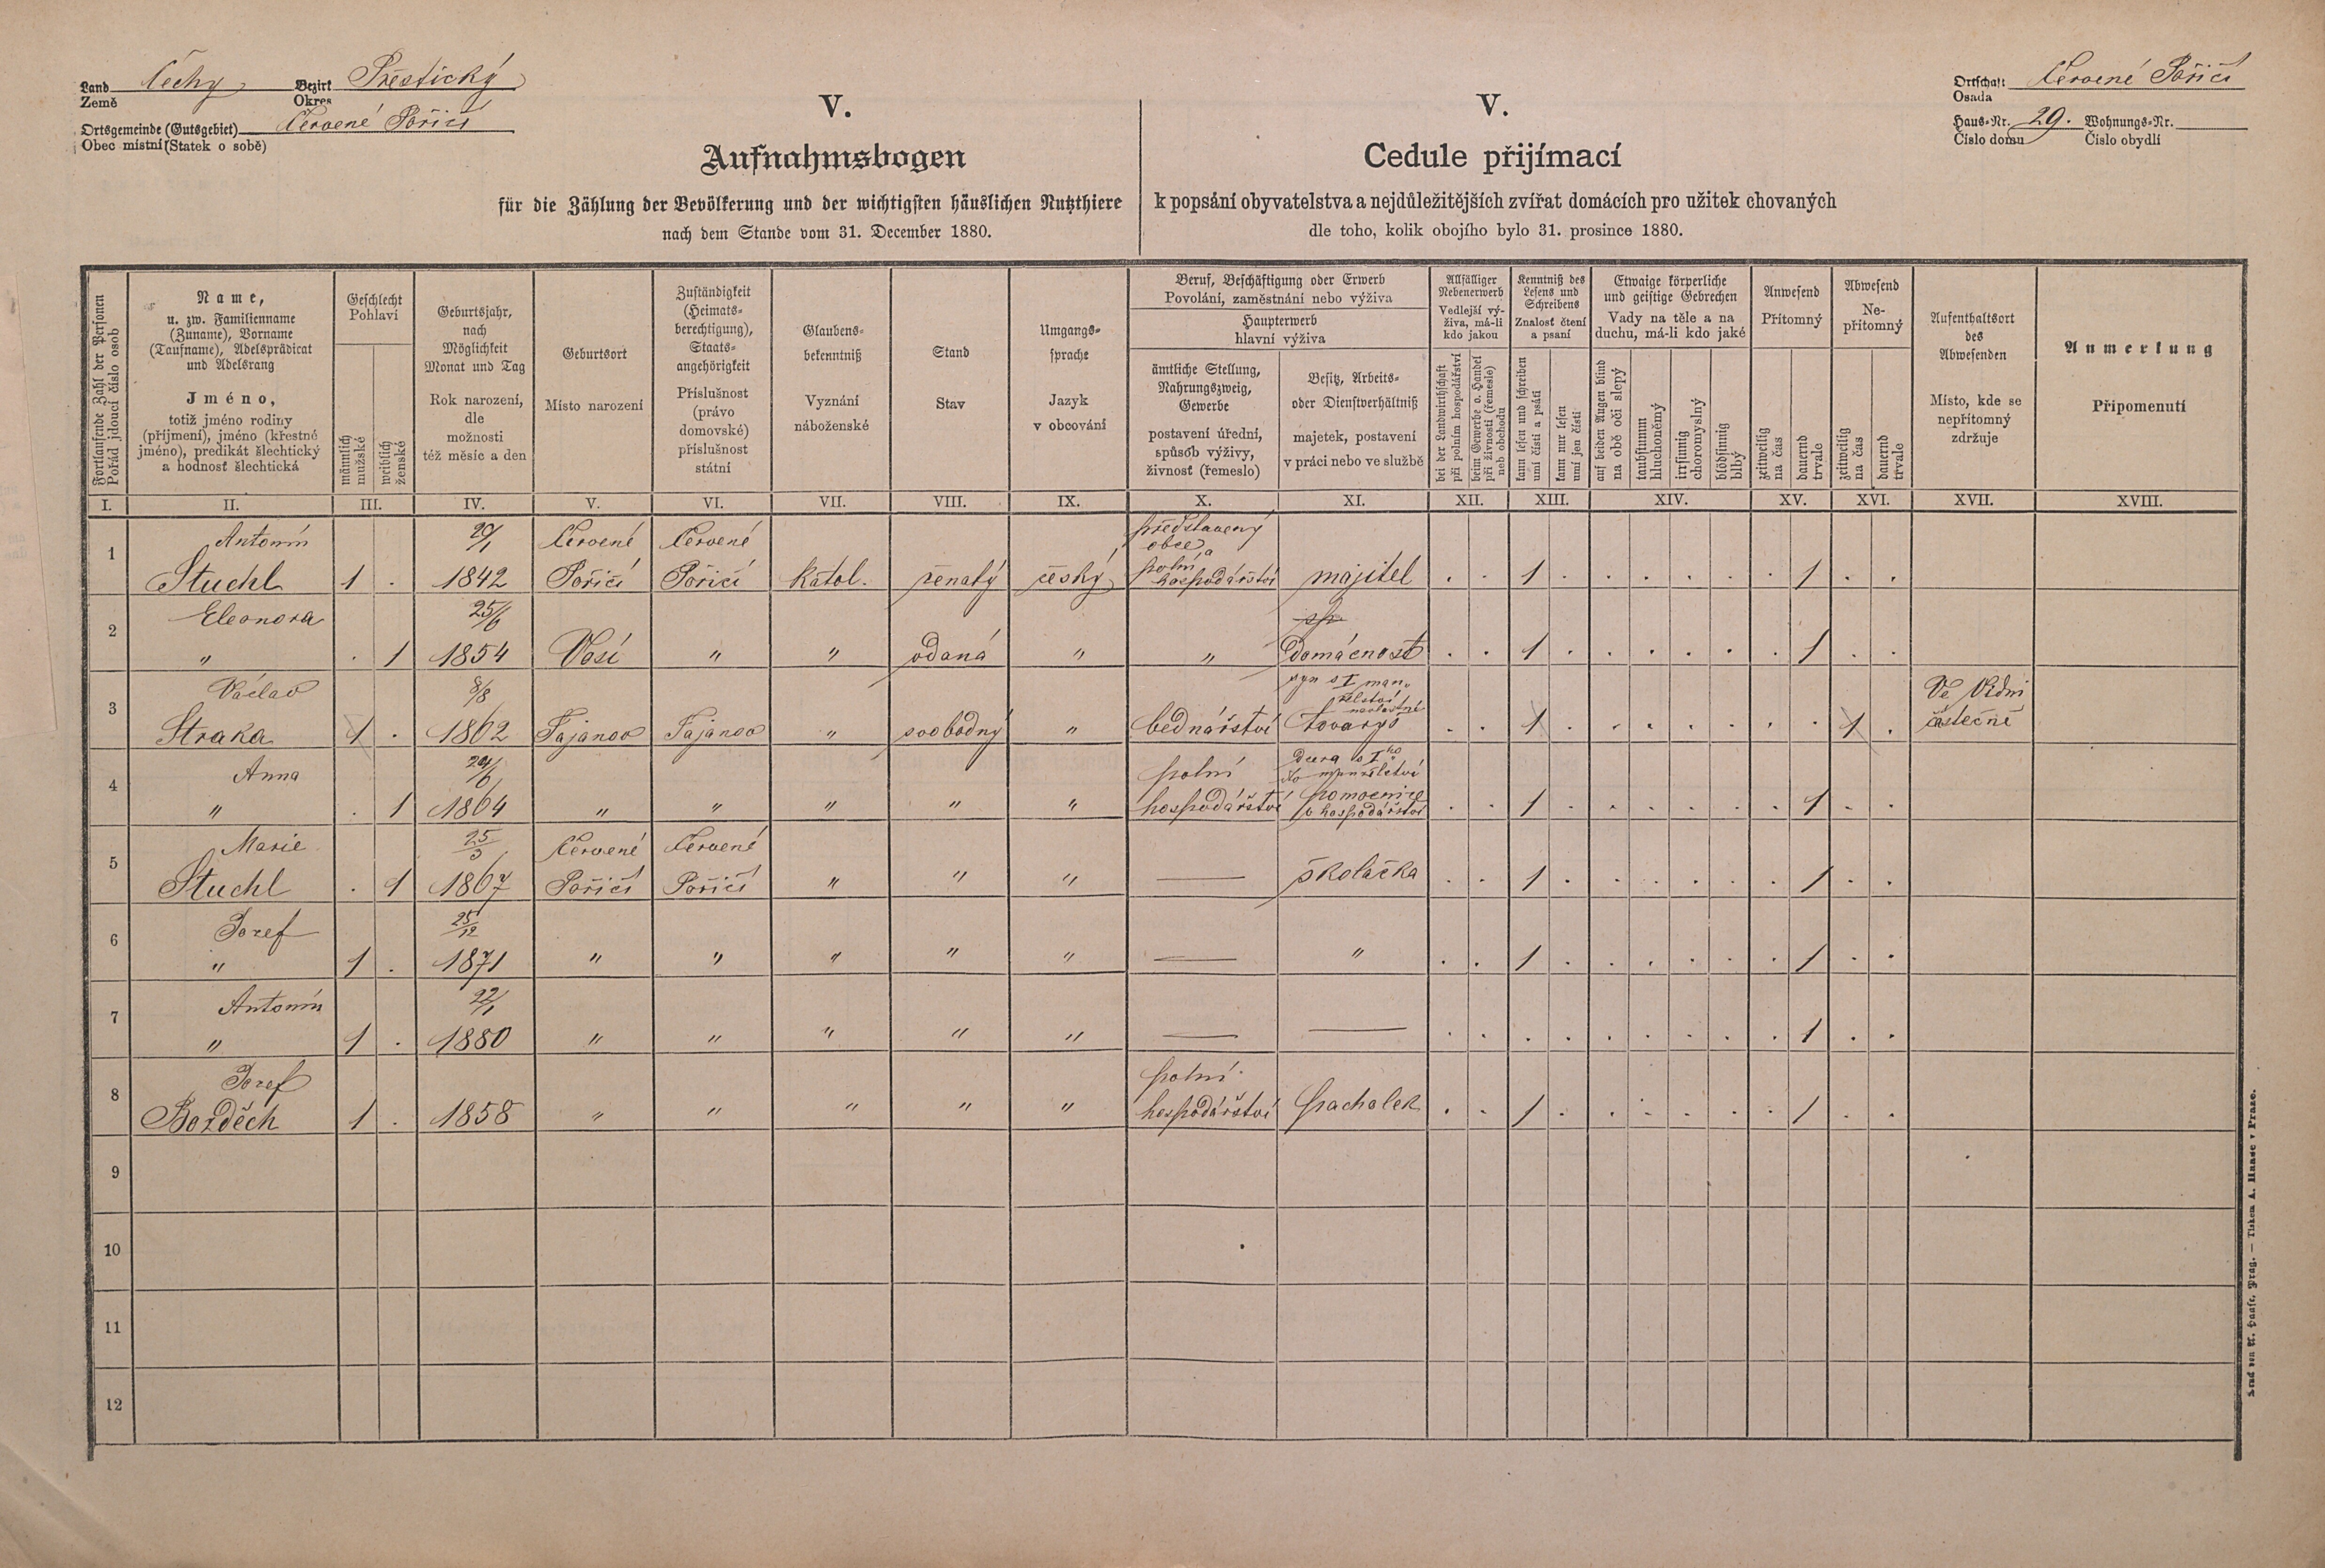 Land Čechy Bezirk Přestický
Země Okres
Ortsgemeinde (Gutsgebiet) Červené Poříčí
Obec místní (Statek o sobě)
Ortschaft Červené Poříčí
Osada
Haus-Nr. 29. Wohnungs-Nr.
Číslo domu Číslo obydlí
V.
Aufnahmsbogen
für die Zählung der Bevölkerung und der wichtigsten häuslichen Nutzthiere
nach dem Stande vom 31. December 1880.
V.
Cedule přijímací
k popsání obyvatelstva a nejdůležitějších zvířat domácích pro užitek chovaných
dle toho, kolik obojího bylo 31. prosince 1880.
Fortlaufende Zahl der Personen
Pořád jdoucí číslo osob
Name,
u. zw. Familienname
(Zuname), Vorname
(Taufname), Adelsprädicat
und Adelsrang
Jméno,
totiž jméno rodiny
(příjmení), jméno (křestné
jméno), predikát šlechtický
a hodnost šlechtická
Geschlecht
Pohlaví
männlich
mužské
weiblich
ženské
Geburtsjahr,
nach
Möglichkeit
Monat und Tag
Rok narození,
dle
možnosti
též měsíc a den
Geburtsort
Místo narození
Zuständigkeit
(Heimats-
berechtigung),
Staats-
angehörigkeit
Příslušnost
(právo
domovské)
příslušnost
státní
Glaubens-
bekenntniß
Vyznání
náboženské
Stand
Stav
Umgangs-
sprache
Jazyk
v obcování
Beruf, Beschäftigung oder Erwerb
Povolání, zaměstnání nebo výživa
Haupterwerb
hlavní výživa
ämtliche Stellung,
Nahrungszweig,
Gewerbe
postavení úřední,
spůsob výživy,
živnost (řemeslo)
Besitz, Arbeits-
oder Dienstverhältniß
majetek, postavení
v práci nebo ve službě
Allfälliger
Nebenerwerb
Vedlejší vý-
živa, má-li
kdo jakou
bei der Landwirthschaft
při polním hospodářství
beim Gewerbe o. Handel
při živnosti (řemesle)
neb obchodu
Kenntniß des
Lesens und
Schreibens
Znalost čtení
a psaní
kann lesen und schreiben
umí čísti a psáti
kann nur lesen
umí jen čísti
Etwaige körperliche
und geistige Gebrechen
Vady na těle a na
duchu, má-li kdo jaké
auf beiden Augen blind
na obě oči slepý
taubstumm
hluchoněmý
irrsinnig
choromyslný
blödsinnig
blbý
Anwesend
Přítomný
zeitweilig
na čas
dauernd
trvale
Abwesend
Ne-
přítomný
zeitweilig
na čas
dauernd
trvale
Aufenthaltsort
des
Abwesenden
Místo, kde se
nepřítomný
zdržuje
Anmerkung
Připomenutí
I. II. III. IV. V. VI. VII. VIII. IX. X. XI. XII. XIII. XIV. XV. XVI. XVII. XVIII.
Antonín 20/1 Červené Červené představený
obce a
polní
1 Stuchl 1 . 1842 Poříčí Poříčí katol. ženatý český hospodářství majitel . . 1 . . . . . . 1 . .
Eleonora 25/6
2 " . 1 1854 Vosí " " vdaná " " domácnost . . 1 . . . . . . 1 . .
Václav 8/8 syn z I man-
želství
nevlastní Ve Vídni
3 Straka 1 . 1862 Tajanov Tajanov " svobodný " bednářství tovaryš . . 1 . . . . . . . 1 .
Anna 24/6 polní dcera z I ho
manželství
pomocnice
4 " . 1 1864 " " " " " hospodářství v hospodářství . . 1 . . . . . . 1 . .
Marie 25/3 Červené Červené
5 Stuchl . 1 1867 Poříčí Poříčí " " " — školačka . . 1 . . . . . . 1 . .
Josef 25/12
6 " 1 . 1871 " " " " " — " . . 1 . . . . . . 1 . .
Antonín 22/1
7 " 1 . 1880 " " " " " — — . . . . . . . . . 1 . .
Josef polní
8 Bozděch 1 . 1858 " " " " " hospodářství pacholek . . 1 . . . . . . 1 . .
9
10
11
12
Druck von A. Haase, Prag. — Tiskem A. Haase v Praze.